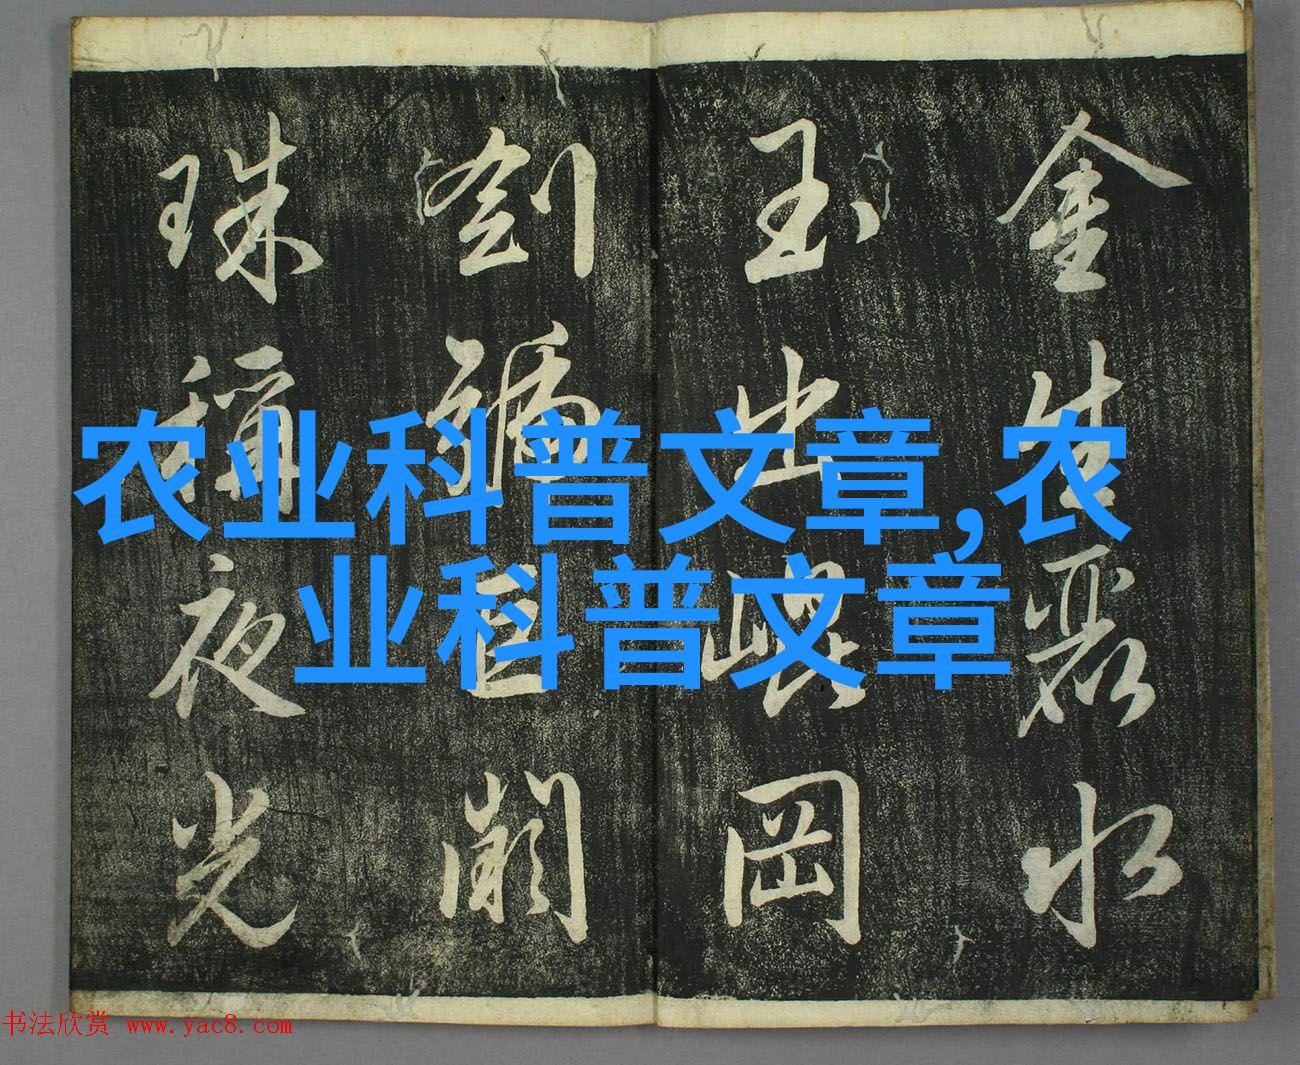 金生麗水
玉出崐岡
劍號巨闕
珠稱夜光
农业科普文章,农
业科普文章
书法欣赏 www.yac8.com